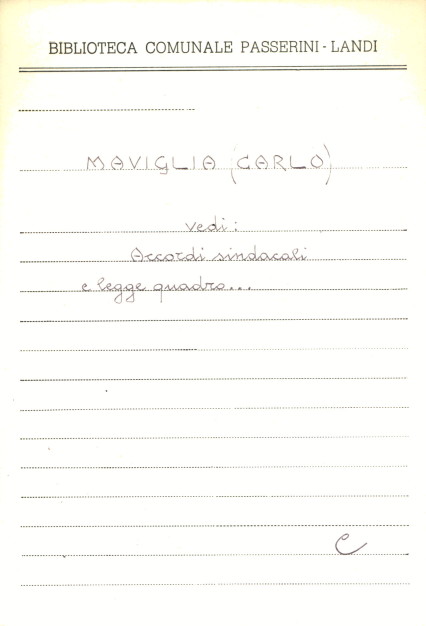 BIBLIOTECA COMUNALE PASSERINI - LANDI
MAVIGLIA (CARLO)
vedi:
Accordi sindacali
e legge quadro...
C